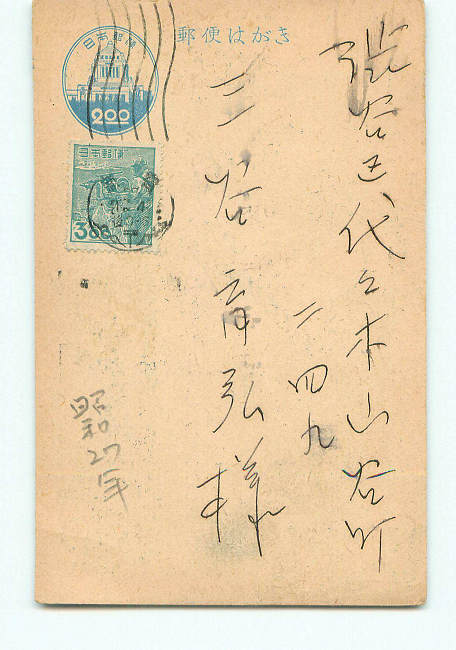 郵便はがき
日本郵便
2.00
日本郵便
3.00
渋谷区代々木山谷町
二四九
三谷育弘様
昭和
27年